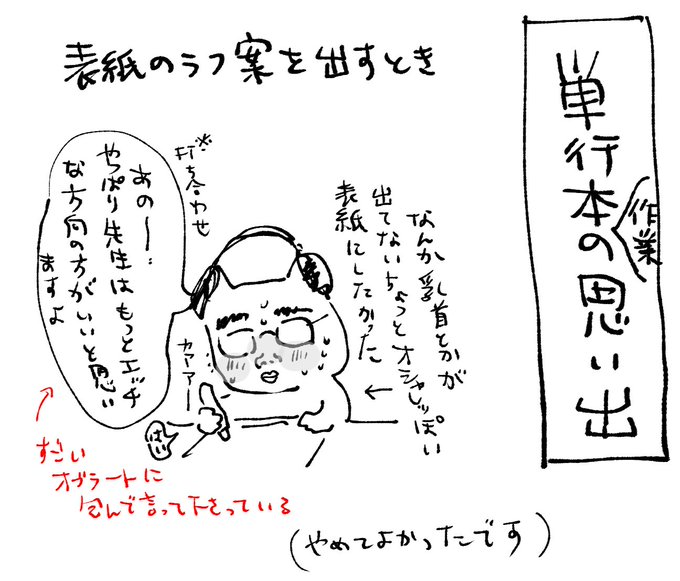 単行本の思い出
作業
表紙のラフ案を出すとき
なんか乳首とかが
出てないちょっとオシャレっぽい
表紙にしたかった
※打ち合わせ
あのー…
やっぱり先生はもっとエッチ
な方向の方がいいと思い
ますよ
カァァー
はい
すごい
オブラートに
包んで言って下さっている
(やめてよかったです)